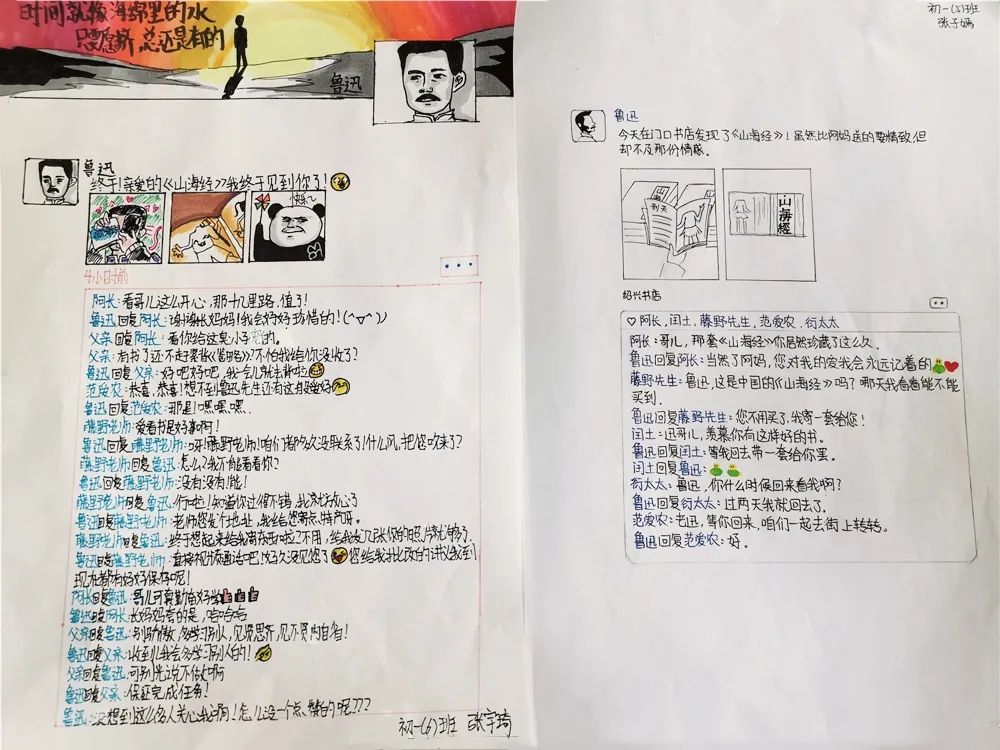 时间就像海绵里的水
只要愿挤,总还是有的
鲁迅
鲁迅
终于!亲爱的《山海经》?我终于见到你了!
4小时前
阿长:看哥儿这么开心,那十几里路,值了!
鲁迅回复阿长:谢谢长妈妈!我会好好珍惜的!(^▽^)
父亲回复阿长:看你给这臭小子惯的。
父亲:有书了还不赶紧背《鉴略》?不怕我给你没收了?
鲁迅回复父亲:好吧好吧,我一会儿就去背啦
范爱农:恭喜,恭喜!想不到鲁迅先生还有这段爱好
鲁迅回复范爱农:那是!嘿嘿嘿..
藤野老师:爱看书是好事啊!
鲁迅回复藤野老师:呀!藤野老师!咱们都多久没联系了!什么风把您吹来了?
藤野老师回复鲁迅:怎么?我不能看看你?
鲁迅回复藤野老师:没有没有!能!
藤野老师回复鲁迅:行啦!知道你过得不错,我就放心了
鲁迅回复藤野老师:老师您发个地址,我给您寄点特产呀。
藤野老师回复鲁迅:终于想起来给我寄东西啦?不用,给我发几张你的照片就够了.
鲁迅回复藤野老师:直接视频通话吧!好久没见您了 您给我批改的讲义我至
现在都有好好保存呢!
阿长回复鲁迅:哥儿可真勤奋好学
鲁迅回复阿长:长妈妈夸的是,哈哈哈
父亲回复鲁迅:别骄傲,多学习别人,见贤思齐,见不贤内自省!
鲁迅回复父亲:收到!我会多学习别人的!
父亲回复鲁迅:可别光说不做啊
鲁迅回复父亲:保证完成任务!
鲁迅:没想到这么多人关心我啊!怎么没一个点赞的呢???
初一(6)班 张宇琦
初一(5)班
张子嫣
鲁迅
今天在门口书店发现了《山海经》!虽然比阿妈送的要精致,但
却不及那份情感。
山海
刑天
山海經
绍兴书店
♡阿长,闰土,藤野先生,范爱农,衍太太
阿长:哥儿,那套《山海经》你居然珍藏了这么久.
鲁迅回复阿长:当然了阿妈,您对我的爱我会永远记着的
藤野先生:鲁迅,这是中国的《山海经》吗?哪天我看看能不能
买到.
鲁迅回复藤野先生:您不用买了,我寄一套给您!
闰土:迅哥儿,羡慕你有这样好的书。
鲁迅回复闰土:等我回去,带一套给你罢。
闰土回复鲁迅:
衍太太:鲁迅,你什么时候回来看我啊?
鲁迅回复衍太太:过两天我就回去了.
范爱农:老迅,等你回来,咱们一起去街上转转。
鲁迅回复范爱农:好.